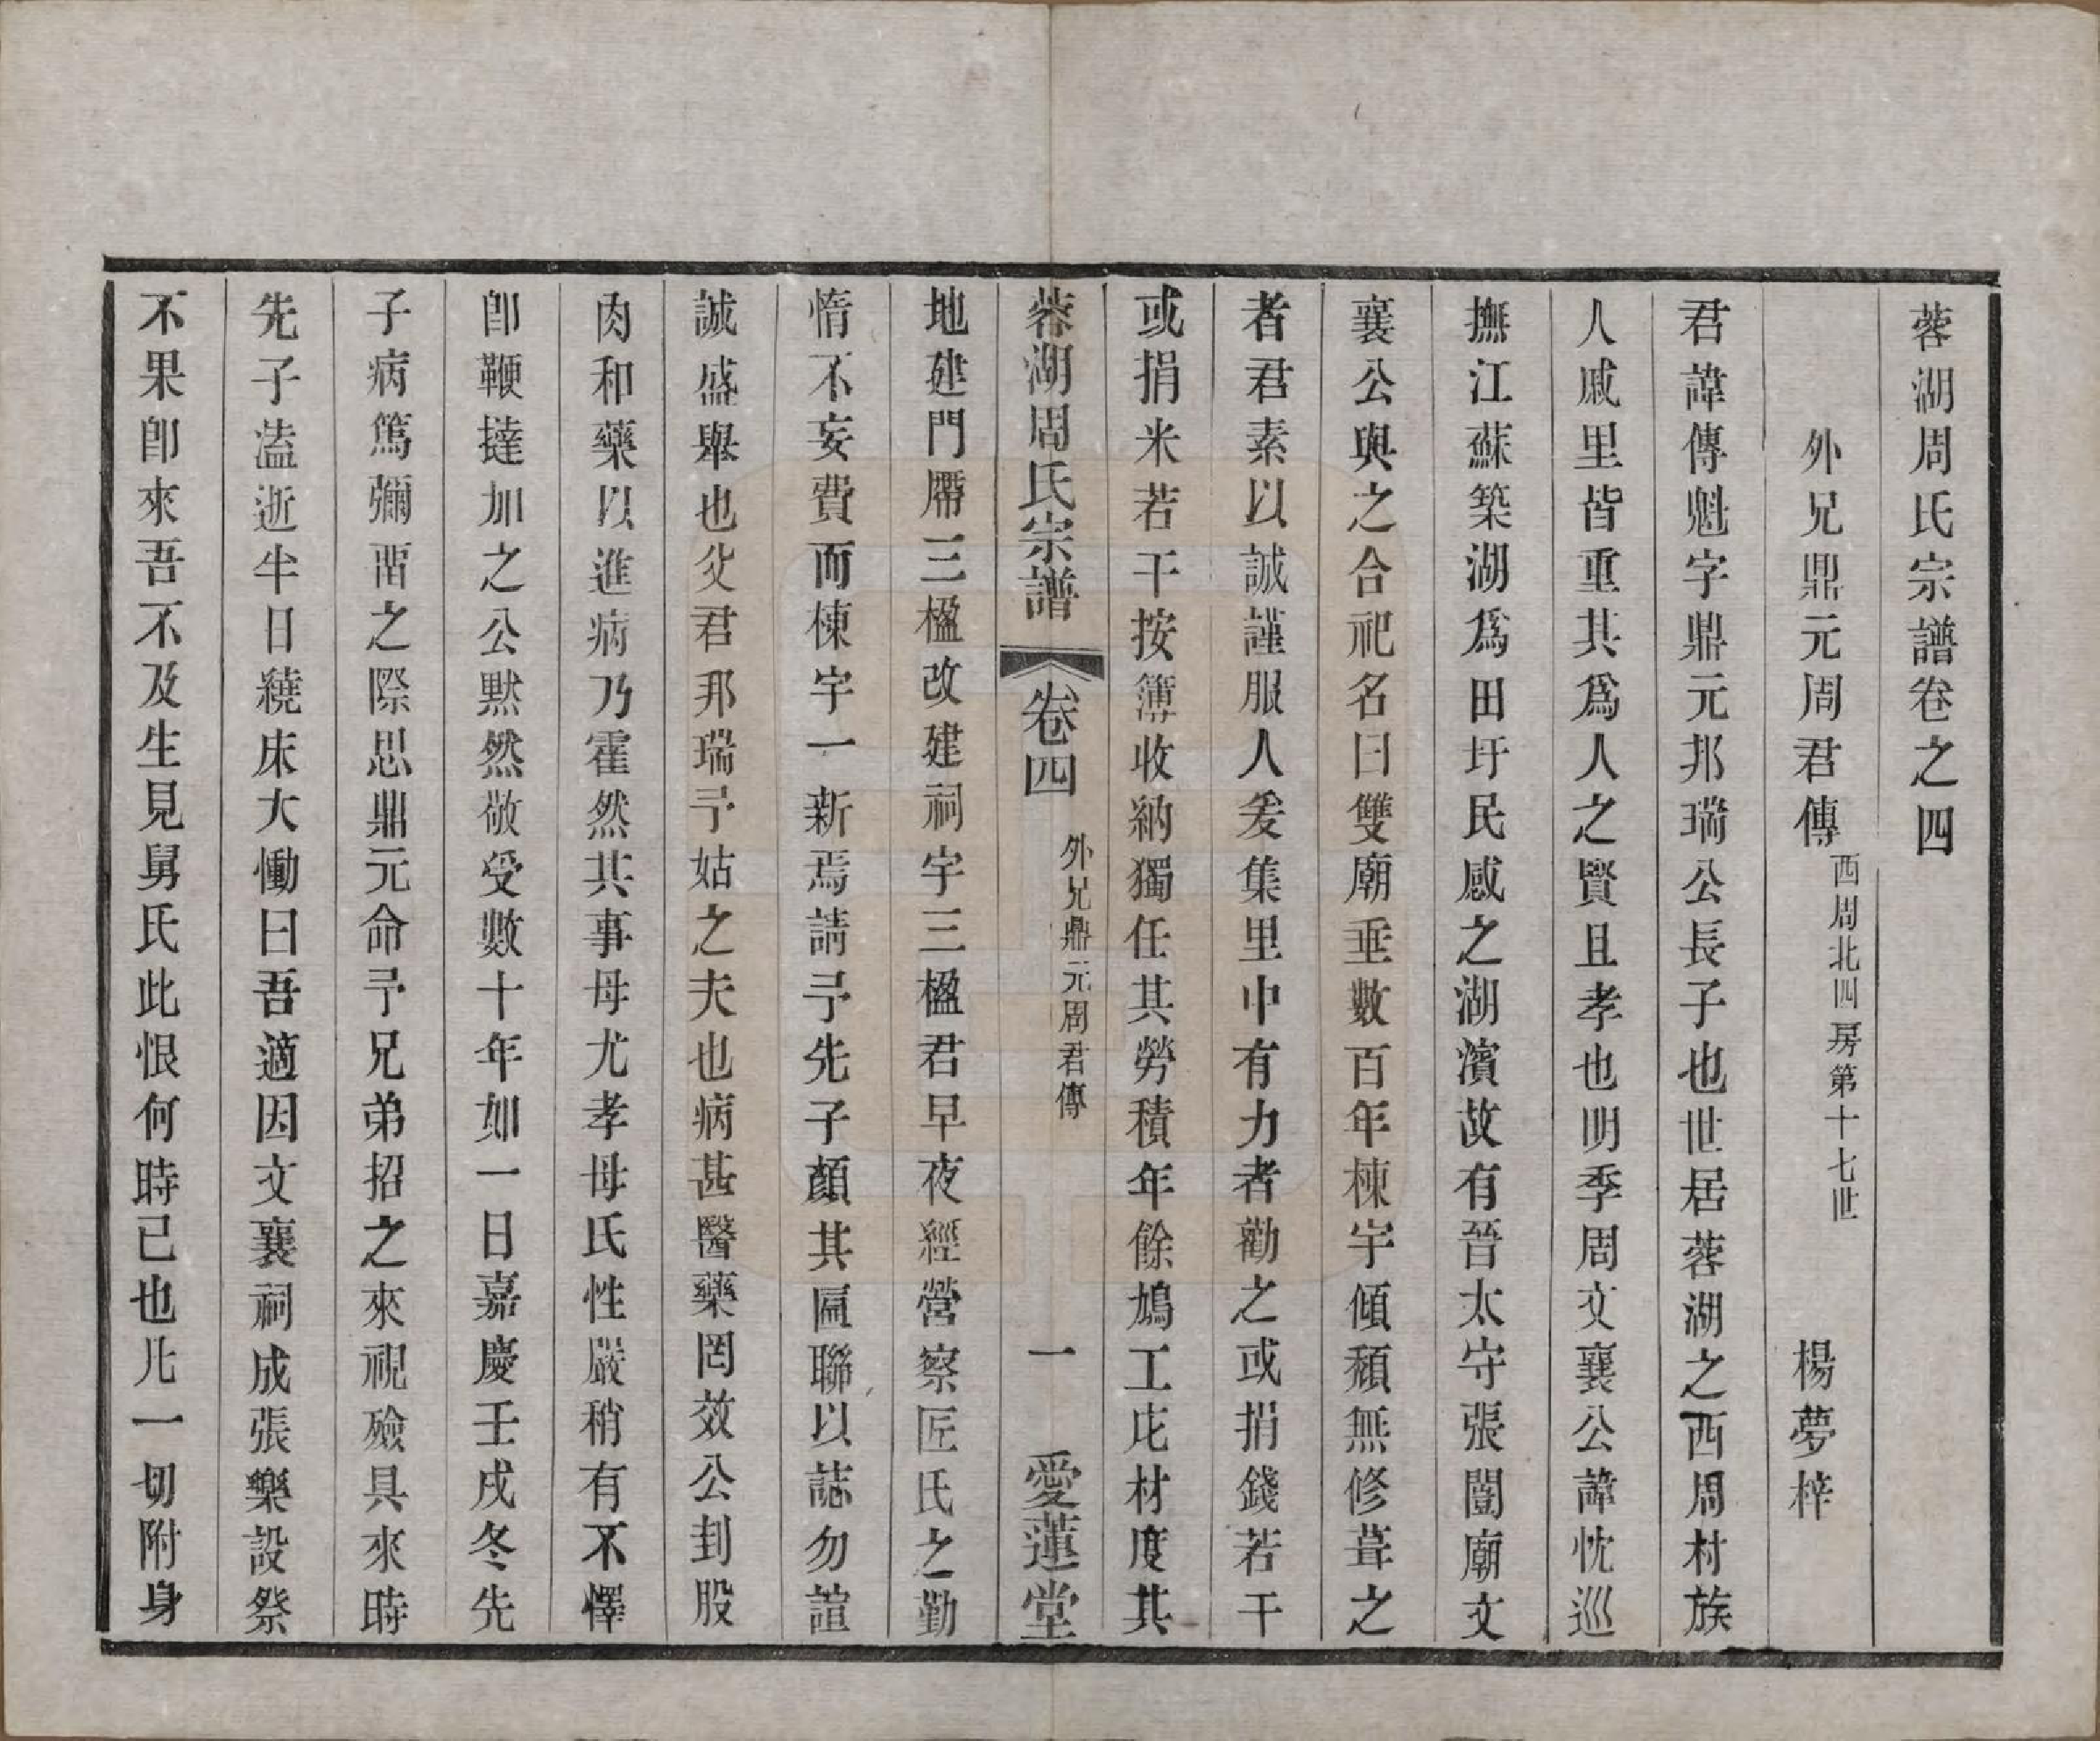 蓉湖周氏宗譜卷之四
外兄鼎元周君傳 西周北四房第十七世 楊夢梓
君諱傳魁字鼎元邦瑞公長子也世居蓉湖之西周村族
人戚里皆重其爲人之賢且孝也明季周文襄公諱忱巡
撫江蘇築湖爲田圩民感之湖濱故有晉太守張闓廟文
襄公與之合祀名曰雙廟垂數百年棟宇傾頹無修葺之
者君素以誠謹服人爰集里中有力者勸之或捐錢若干
或捐米若干按簿收納獨任其勞積年餘鳩工庀材度其
蓉湖周氏宗譜 卷四 外兄鼎元周君傳 一 愛蓮堂
地建門屚三楹改建祠宇三楹君早夜經營察匠氏之勤
惰不妄費而棟宇一新焉請予先子顏其匾聯以誌勿諠
誠盛舉也父君邦瑞予姑之夫也病甚醫藥罔效公刲股
肉和藥以進病乃霍然其事母尤孝母氏性嚴稍有不懌
卽鞭撻加之公默然敬受數十年如一日嘉慶壬戌冬先
子病篤彌留之際思鼎元命予兄弟招之來視殮具來時
先子溘逝半日繞床大慟曰吾適因文襄祠成張樂設祭
不果卽來吾不及生見舅氏此恨何時已也凡一切附身